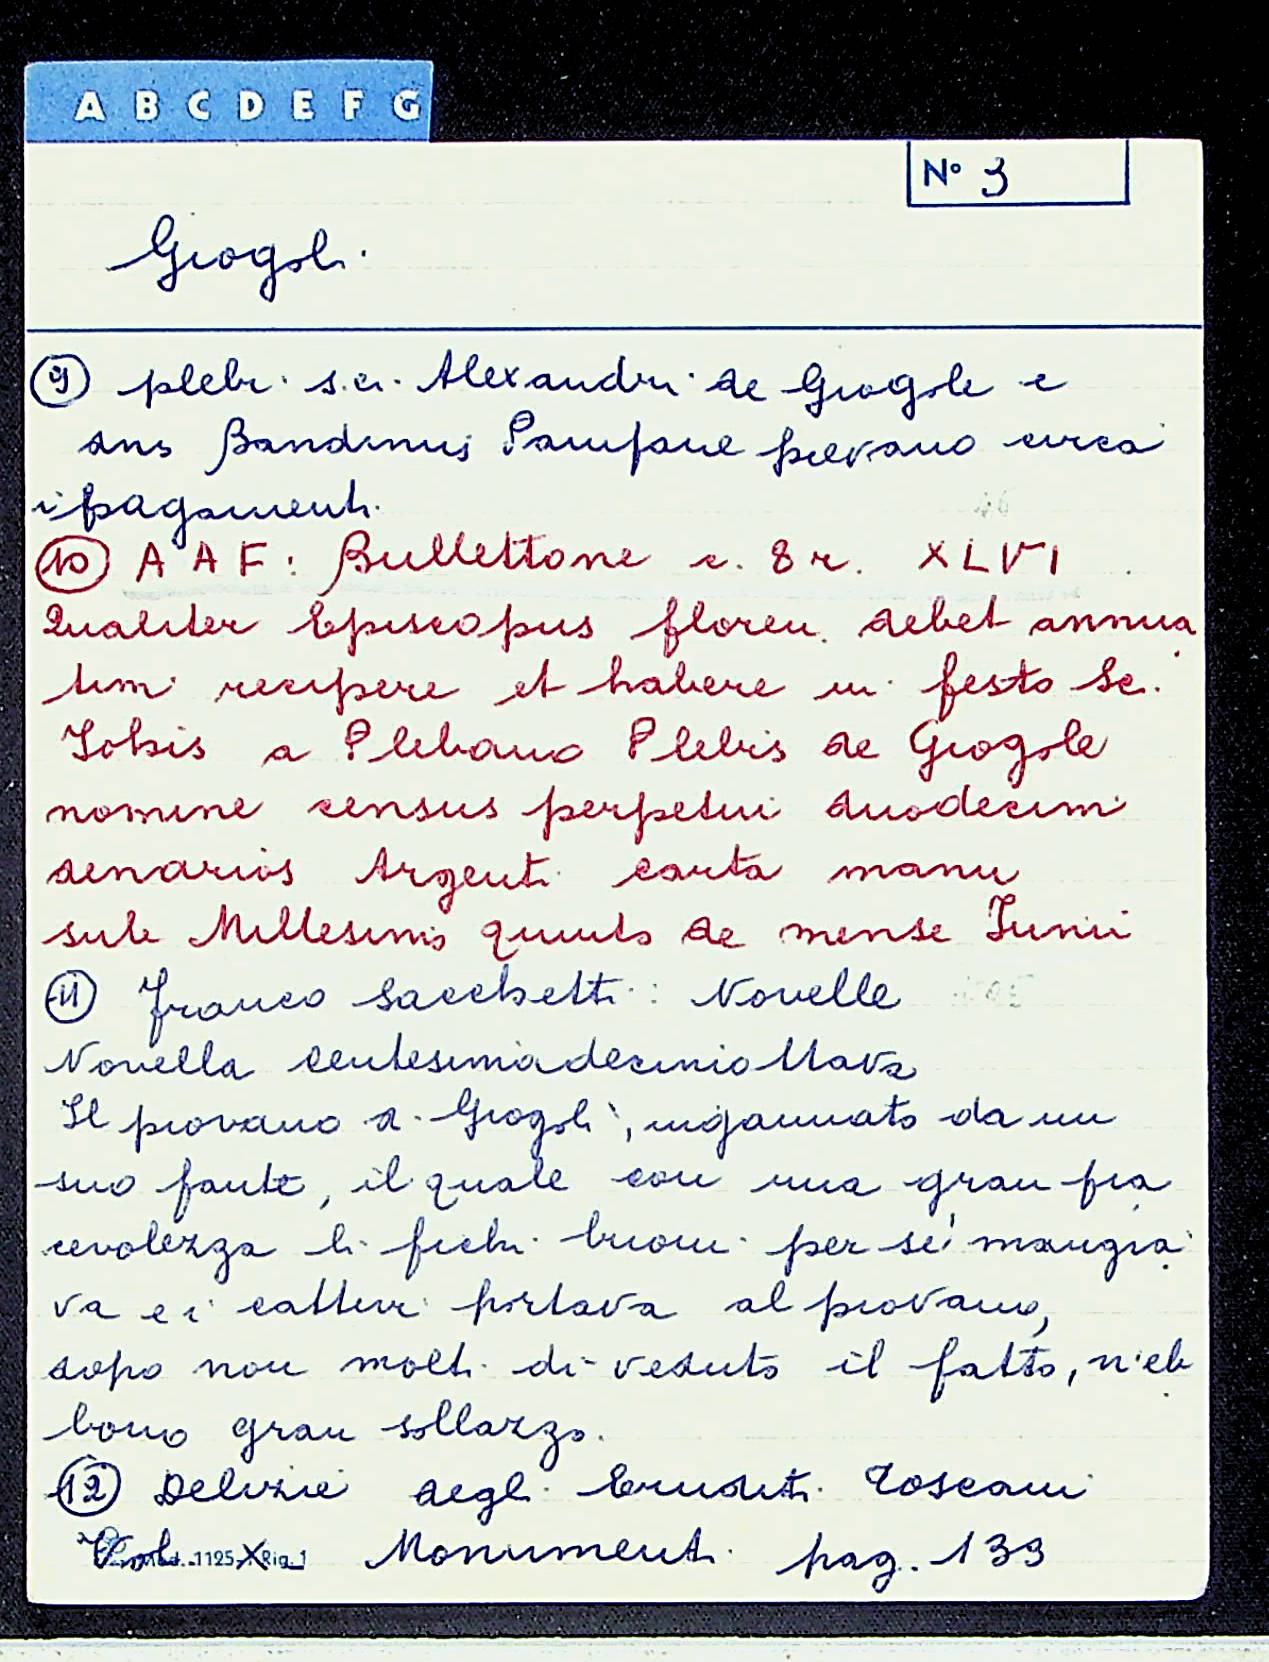 A B C D E F G
N° 3
Giogoli.
⑨ plebi s.ci. Alexandri de Giogole e
dns Bandinus Pampane pievano circa
i pagamenti.
⑩ A A F: Bullettone c. 8 r. XLVI
Qualiter Episcopus floren. debet annua
tim recipere et habere in festo Sci.
Iohis a Plebano Plebis de Giogole
nomine census perpetui duodecim
denarios Argenti carta manu
sub Millesimo quinto de mense Iunii
⑪ Franco Sacchetti: Novelle
Novella centesimadecimottava
Il piovano a Giogoli, ingannato da un
suo fante, il quale con una gran pia
cevolezza li fichi buoni per sé mangia
va e i cattivi portava al piovano,
dopo non molti dì veduto il fatto, n'eb
bono gran sollazzo.
⑫ Delizie degli Eruditi Toscani
Vol. X Monumenti pag. 139
Mod. 1125 Rig. 1